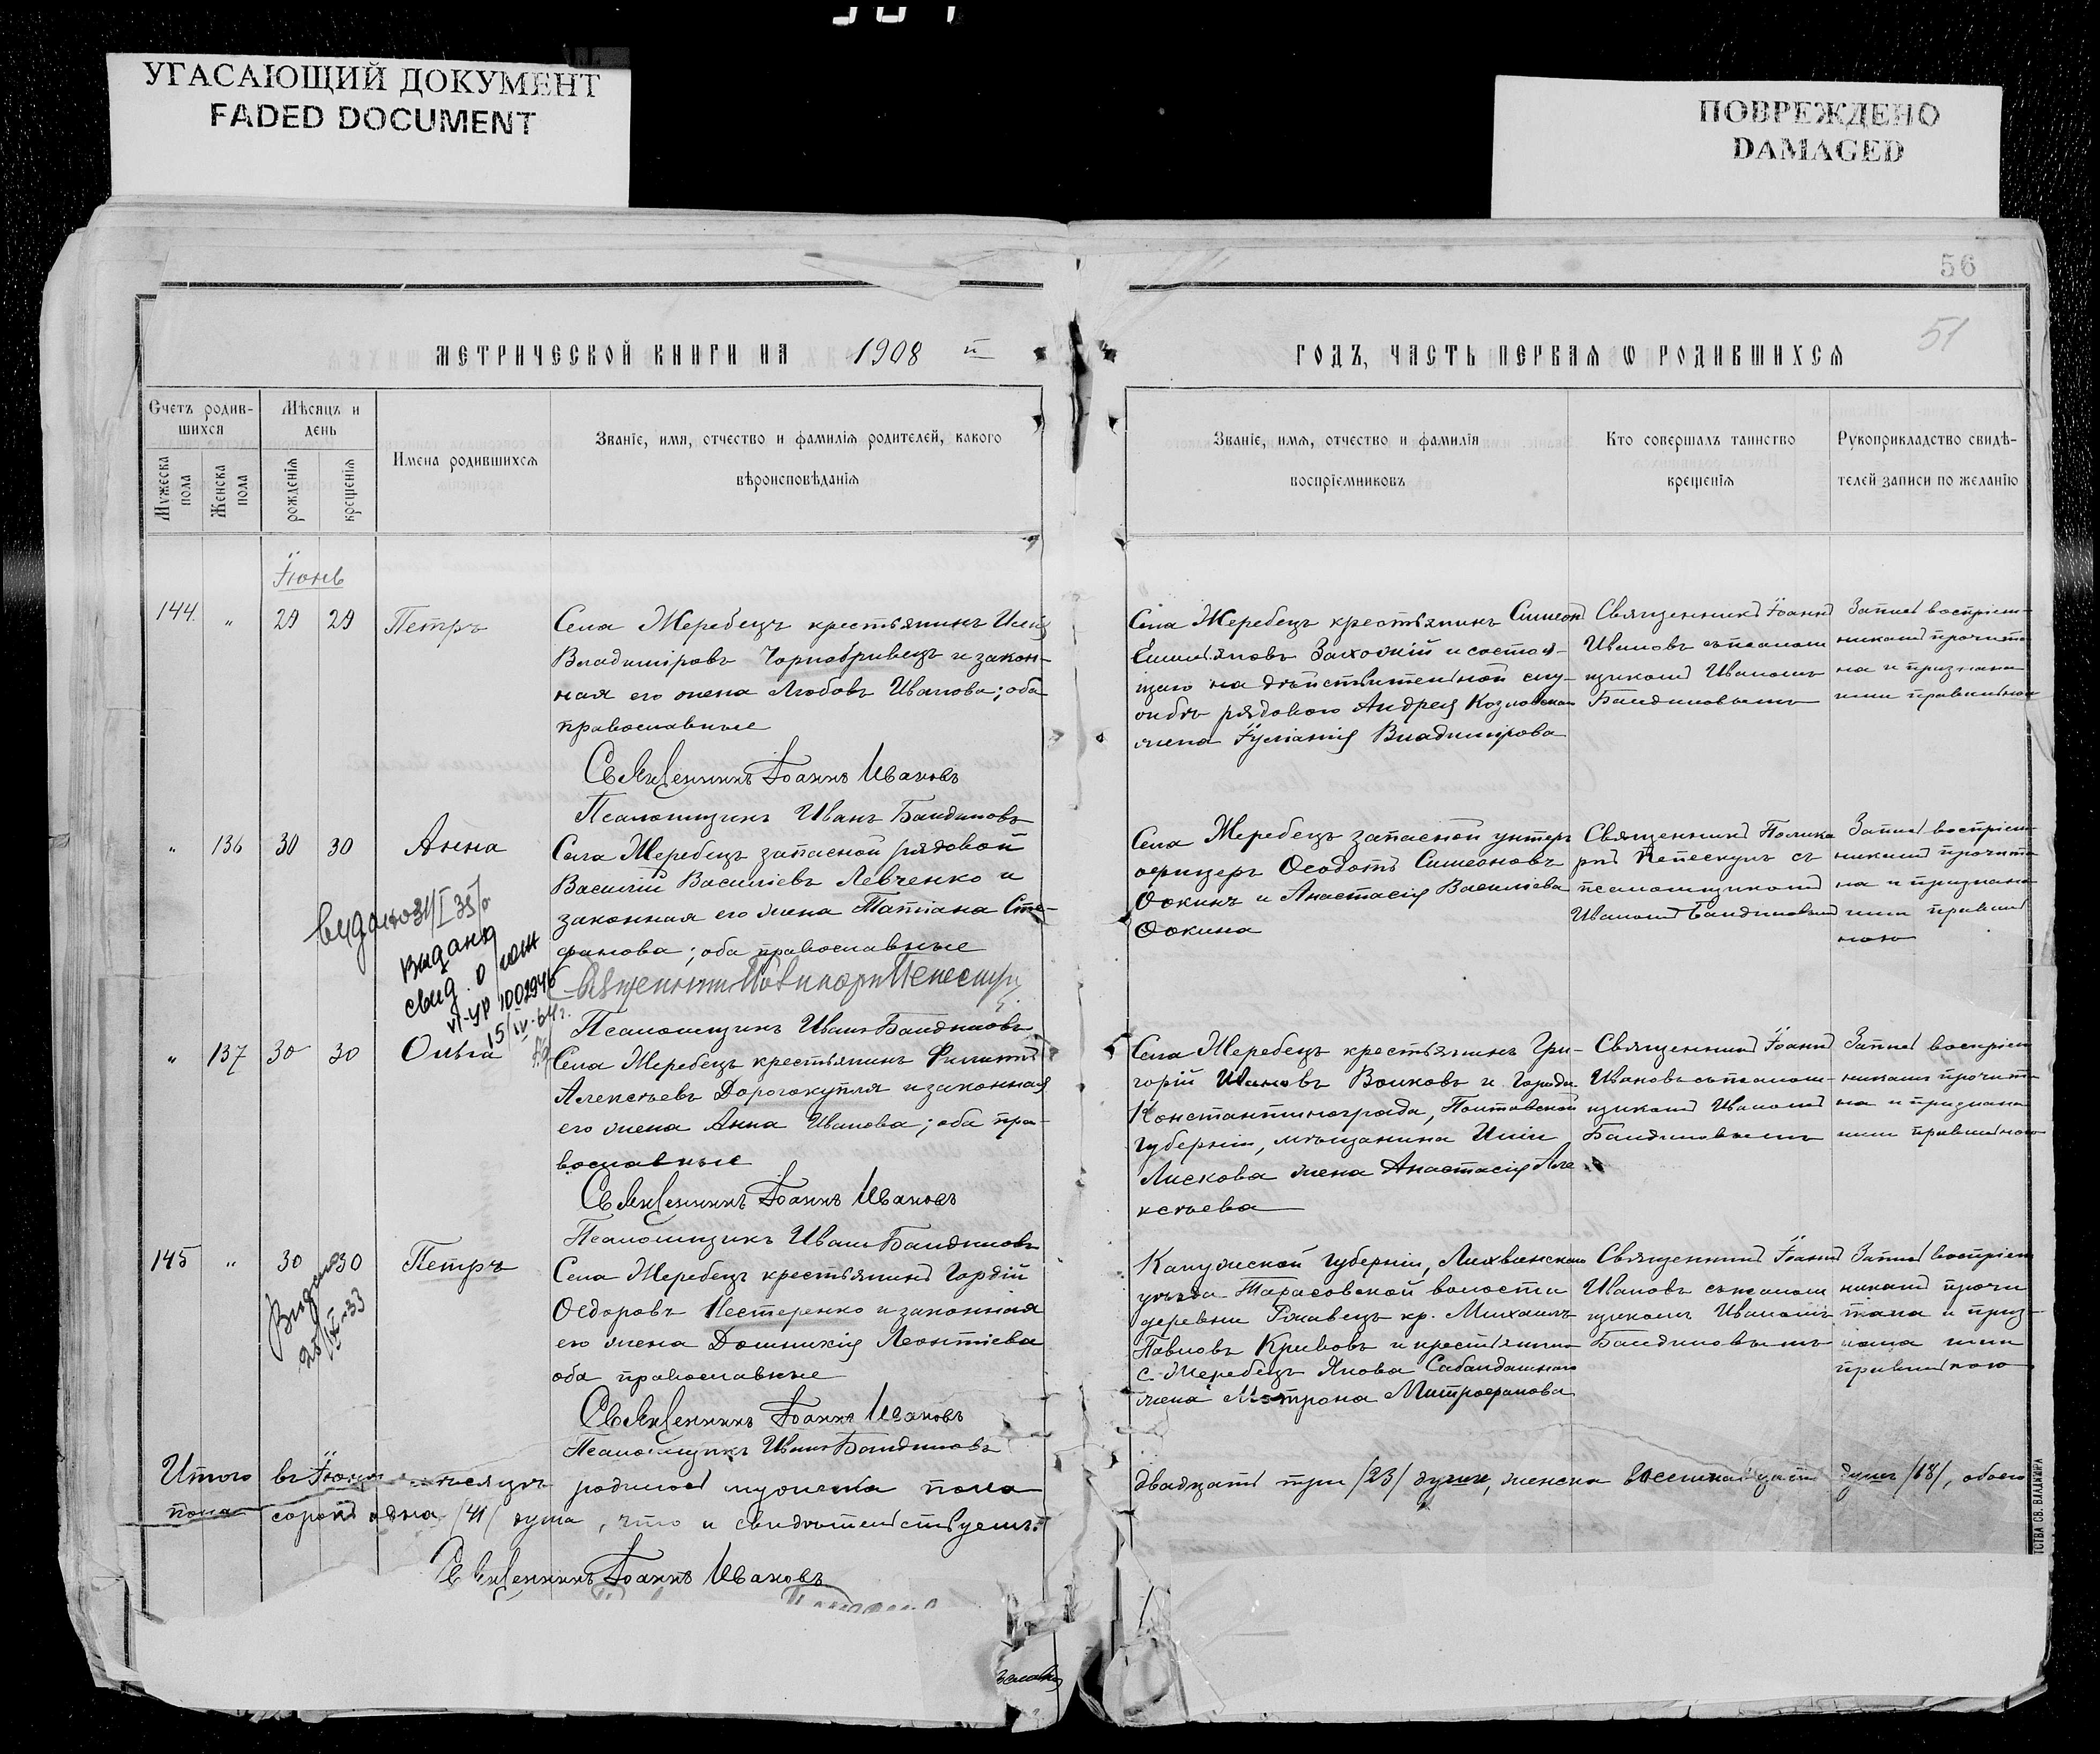 УГАСАЮЩИЙ ДОКУМЕНТ
FADED DOCUMENT
ПОВРЕЖДЕНО
DAMAGED
56
51
МЕТРИЧЕСКОЙ КНИГИ НА 1908 й
ГОДЪ, ЧАСТЬ ПЕРВАЯ Ѡ РОДИВШИХСЯ
Счетъ родив-
шихся
Мѣсяцъ и
день
Мужеска
пола
Женска
пола
рожденія
крещенія
Имена родившихся
Званіе, имя, отчество и фамилія родителей, какого
вѣроисповѣданія
Званіе, имя, отчество и фамилія
воспріемниковъ
Кто совершалъ таинство
крещенія
Рукоприкладство свидѣ-
телей записи по желанію
Іюнь
144. " 29 29 Петръ
Села Жеребецъ крестьянинъ Илія
Владиміровъ Чорнобривецъ и закон-
ная его жена Любовь Иванова; оба
православные
Священникъ Іоаннъ Ивановъ
Псаломщикъ Иванъ Бандиловъ
Села Жеребецъ крестьянинъ Симеон
Захожій и состоя-
щаго на дѣйствительной слу-
жбѣ рядового Андрея Козловскаго
жена Іуліанія Владимірова
Священникъ Іоаннъ
Ивановъ съ псалом-
щикомъ Иваномъ
Бандиловымъ
Запись воспріем-
никами прочита-
на и признана
ими правильною
" 136 30 30 Анна
Села Жеребецъ запасной рядовой
Василій Васильевъ Левченко и
законная его жена Татіана Сте-
фанова; оба православные
Псаломщикъ Иванъ Бандиловъ
Села Жеребецъ запасной унтеръ
офицеръ Ѳеодотъ Симеоновъ
Ѳокинъ и Анастасія Васильева
Ѳокина
Священникъ Полика
рпъ Пепескулъ съ
псаломщикомъ
Иваномъ Бандиловым
Запись воспріем-
никами прочита-
на и признана
ими правиль
ною
видано 31/I 35
видано
свид. о рож
VI-УР 1002946
15/IV-64г.
" 137 30 30 Ольга
Села Жеребецъ крестьянинъ Филиппъ
Алексѣевъ Дорогокупля и законная
его жена Анна Иванова; оба пра-
вославные
Священникъ Іоаннъ Ивановъ
Псаломщикъ Иванъ Бандиловъ
Села Жеребецъ крестьянинъ Гри-
горій Ивановъ Волковъ и города
Константинограда, Полтавской
губерніи, мѣщанина Иліи
Лискова жена Анастасія Але
ксѣева
Священникъ Іоаннъ
Ивановъ съ псалом-
щикомъ Иваномъ
Бандиловымъ
Запись воспріем
никами прочита-
на и признана
ими правильною
145 " 30 30 Петръ
Видано
28/IX-33
Села Жеребецъ крестьянинъ Гордій
Ѳедоровъ Нестеренко и законная
его жена Домникія Леонтіева
оба православные
Священникъ Іоаннъ Ивановъ
Псаломщикъ Иванъ Бандиловъ
Калужской губерніи, Лихвинскаго
уѣзда Тарасовской волости
деревни Ржавецъ кр. Михаилъ
Павловъ Кривовъ и крестьянина
с. Жеребецъ Якова Сабандашнаго
жена Матрона Митрофанова
Священникъ Іоаннъ
Ивановъ съ псалом
щикомъ Иваномъ
Бандиловымъ
Запись воспріем
никами прочи
тана и приз-
нана ими
правильною
Итого въ Іюнѣ мѣсяцѣ родилось мужеска пола двадцать три /23/ души, женска восемнадцать душъ /18/, обоего
пола сорокъ одна /41/ душа, что и свидѣтельствуемъ:
Священникъ Іоаннъ Ивановъ